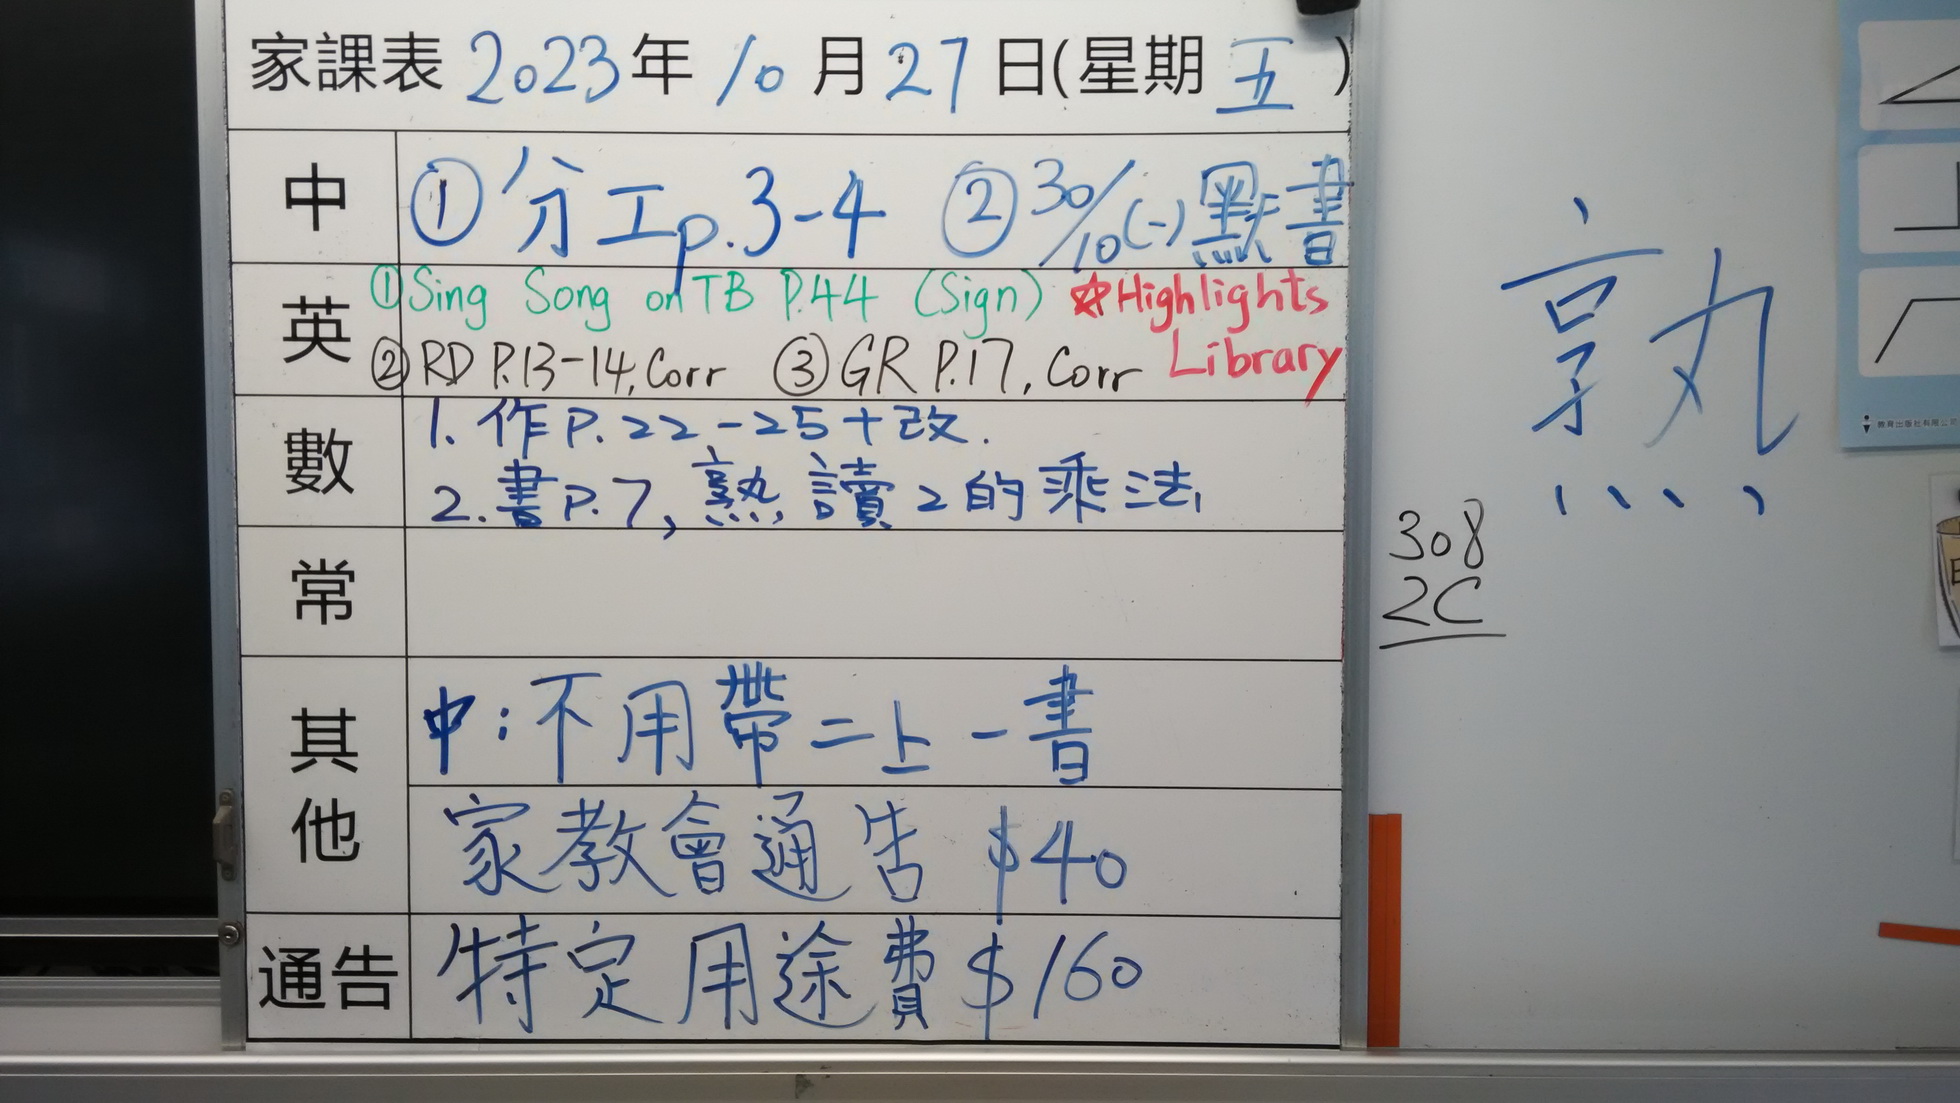 家課表 2023年 10月 27日(星期 五)
中 ①分工p.3-4 ②30/10(一)默書
英 ①Sing Song on TB P.44 (Sign) ☆Highlights
②RD P.13-14, Corr ③GR P.17, Corr Library
數 1. 作P.22-25+改.
2. 書P.7, 熟讀2的乘法,
常
其他 中:不用帶二上一書
家教會通告 $40
通告 特定用途費 $160
熟
308
2C
教育出版社有限公司